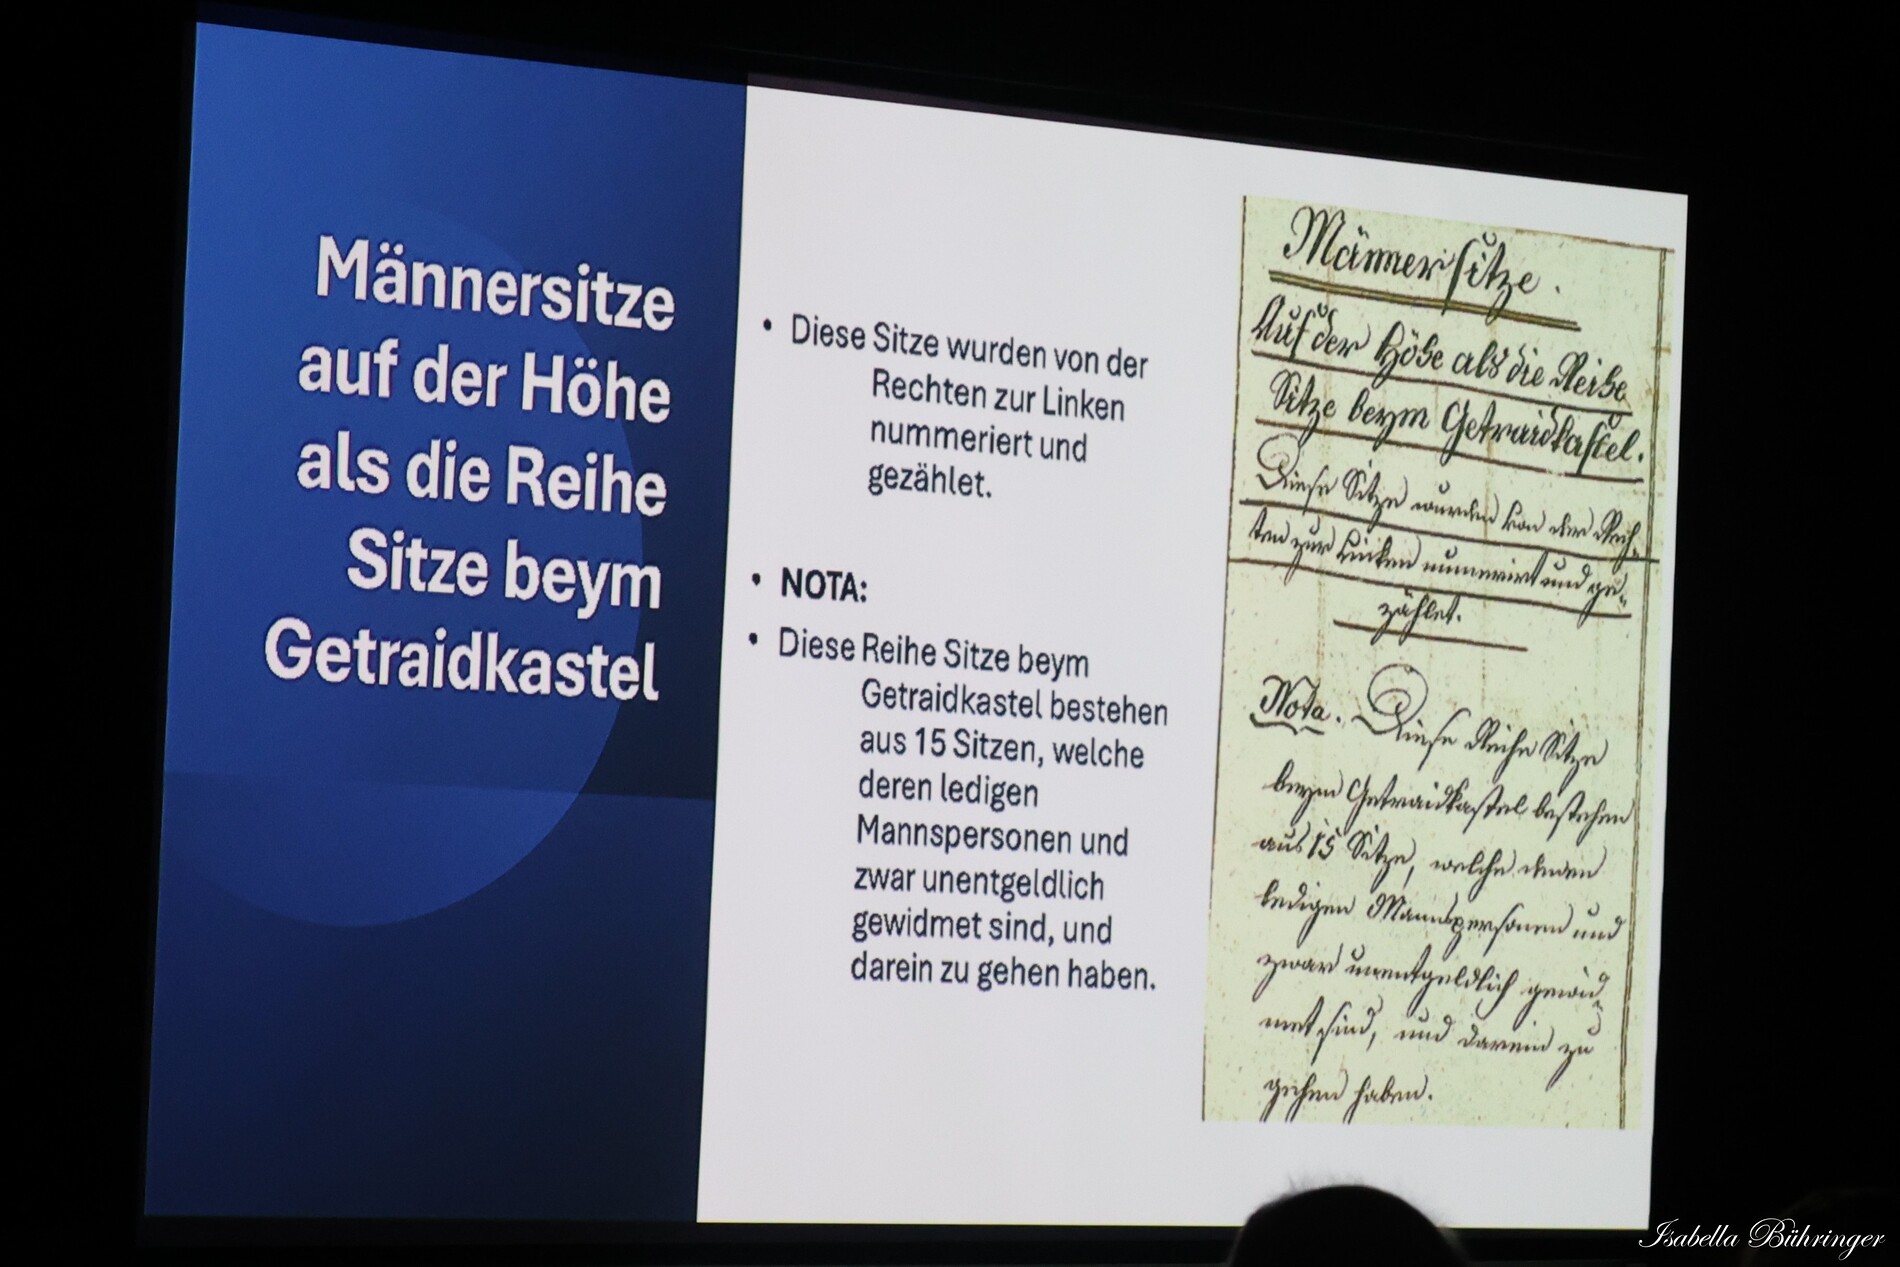 Männersitze
auf der Höhe
als die Reihe
Sitze beym
Getraidkastel
• Diese Sitze wurden von der
Rechten zur Linken
nummeriert und
gezählet.
• NOTA:
• Diese Reihe Sitze beym
Getraidkastel bestehen
aus 15 Sitzen, welche
deren ledigen
Mannspersonen und
zwar unentgeldlich
gewidmet sind, und
darein zu gehen haben.
Männersitze.
Auf der Höhe als die Reihe
Sitze beym Getraidkastel.
Diese Sitze wurden von der Rech-
ten zur Linken numerirt und ge-
zählet.
Nota. Diese Reihe Sitze
beym Getraidkastel bestehen
aus 15 Sitze, welche denen
ledigen Mannspersonen und
zwar unentgeldlich gewid-
met sind, und darein zu
gehen haben.
Isabella Bühringer